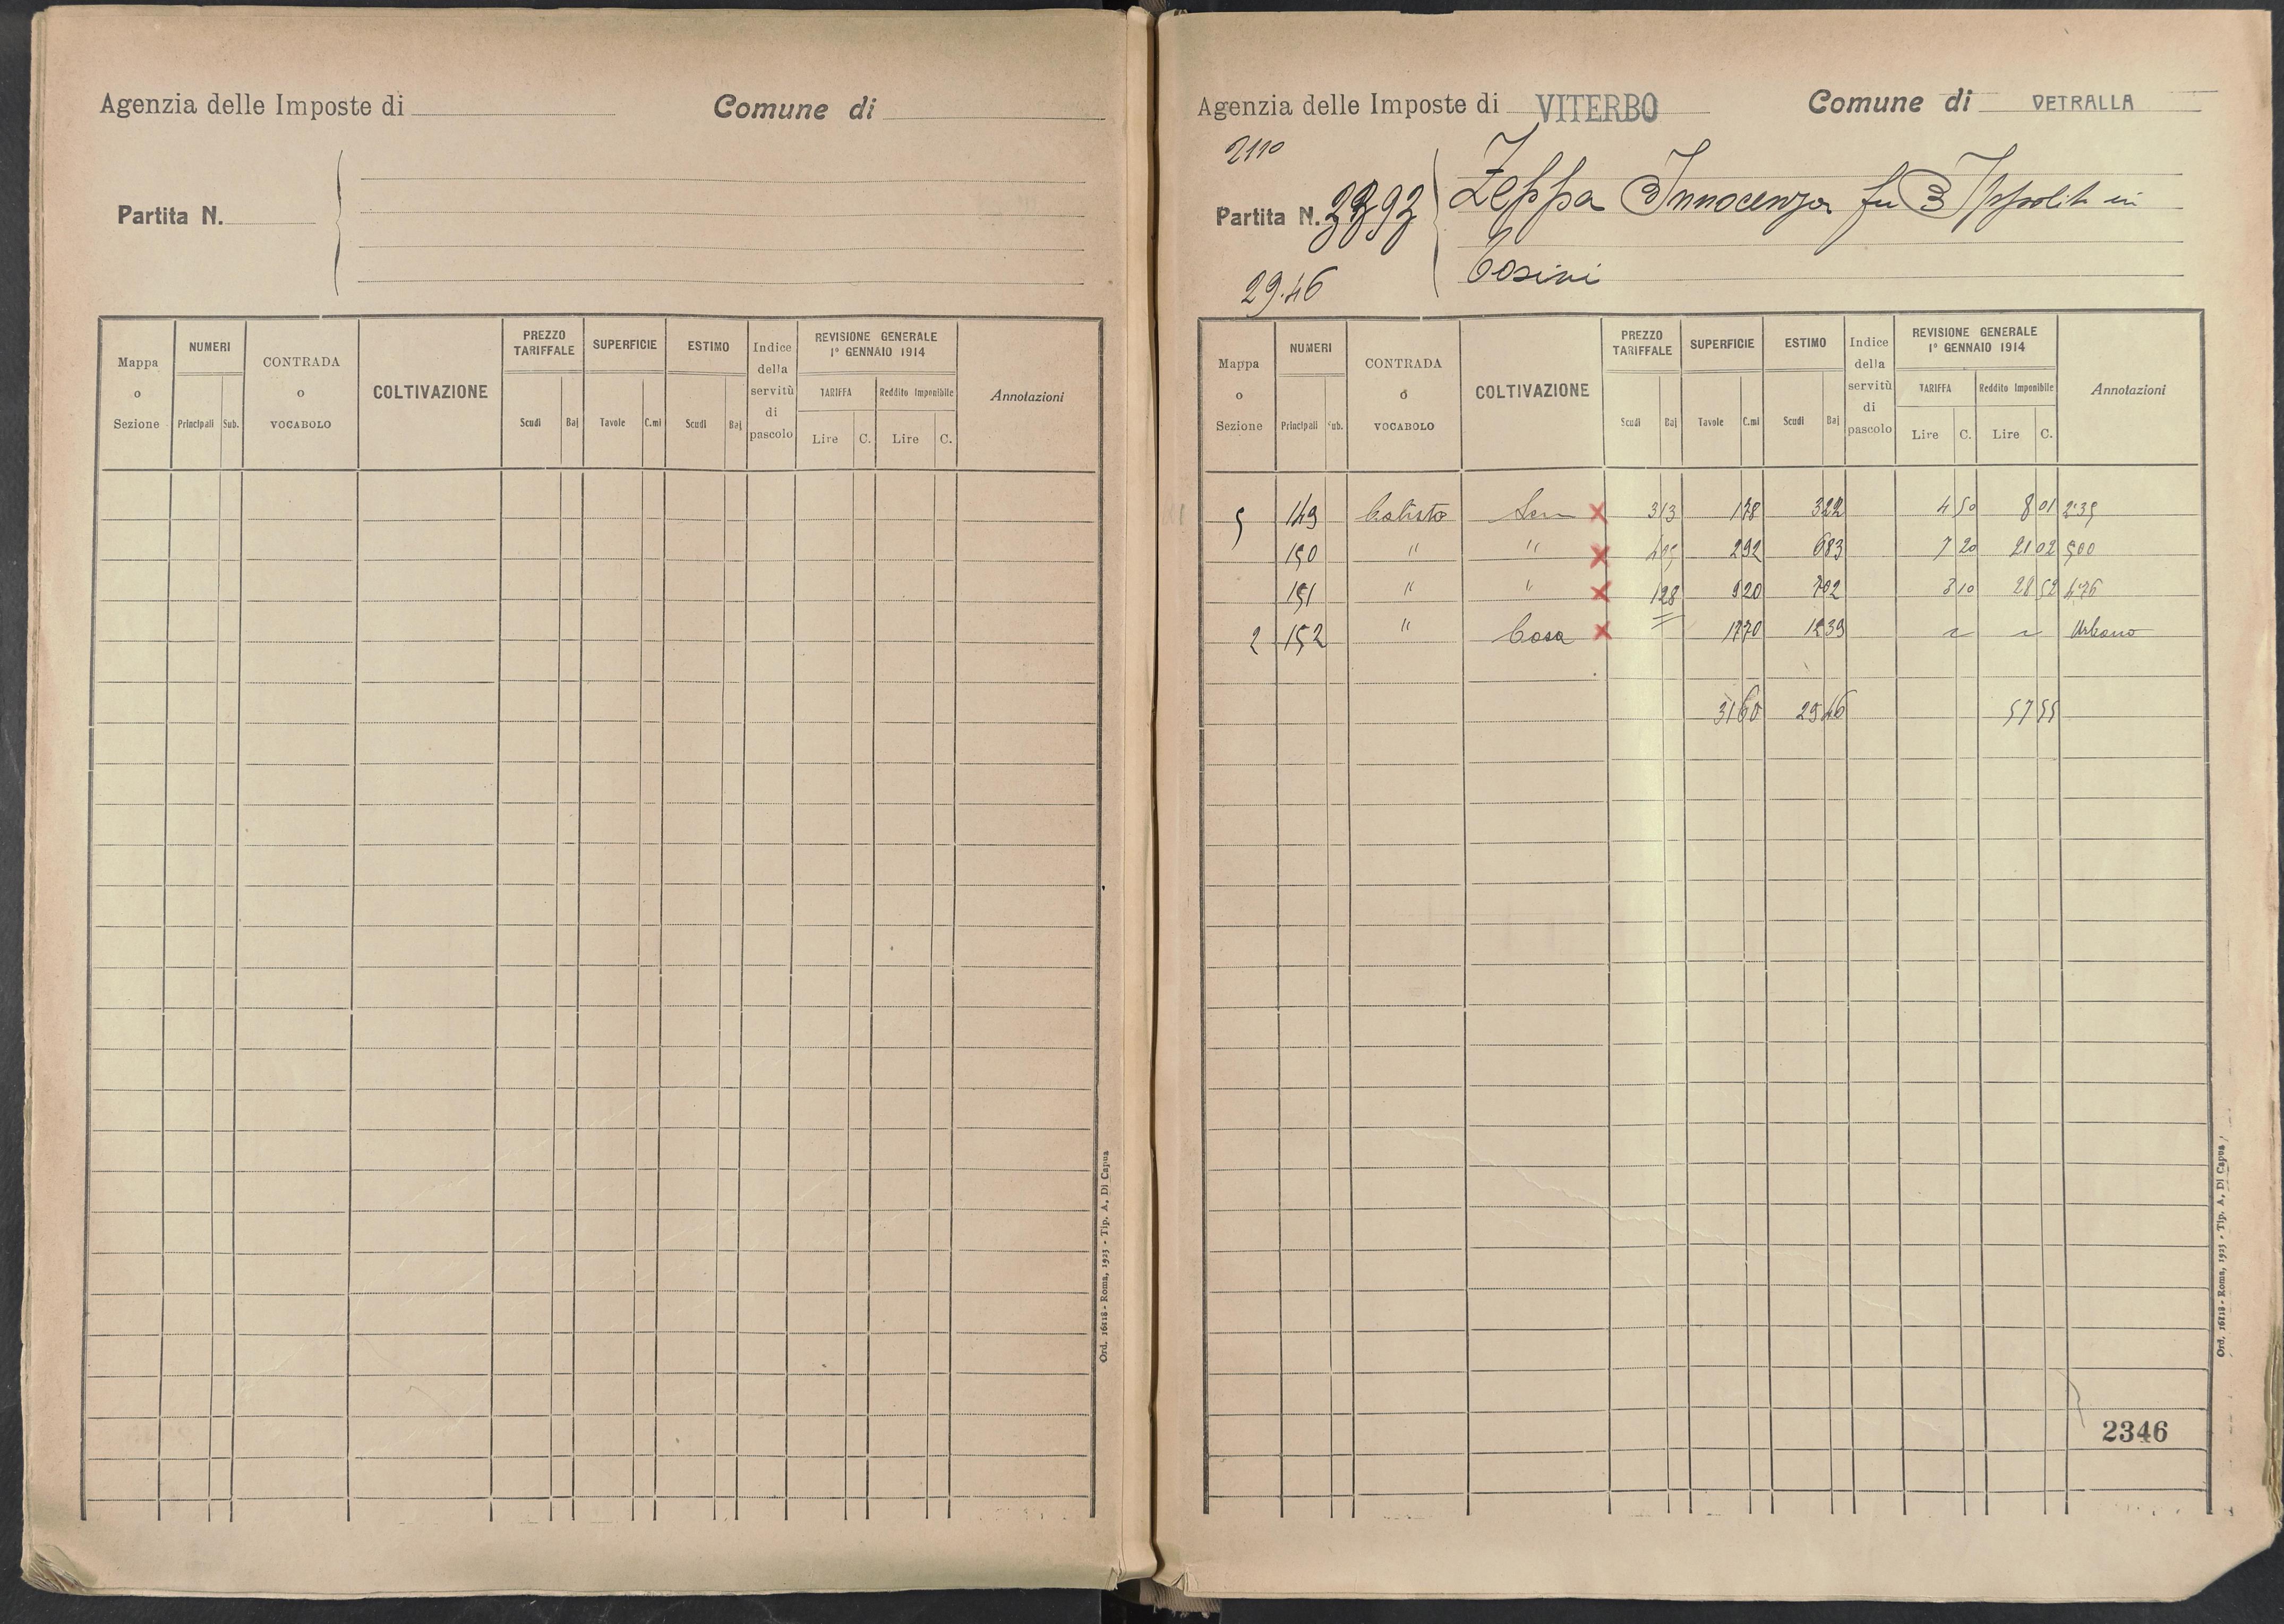 Agenzia delle Imposte di Comune di
Partita N.
Mappa o Sezione NUMERI Principali Sub. CONTRADA o VOCABOLO COLTIVAZIONE PREZZO TARIFFALE Scudi Baj SUPERFICIE Tavole C.mi ESTIMO Scudi Baj Indice della servitù di pascolo REVISIONE GENERALE 1° GENNAIO 1914 TARIFFA Lire C. Reddito Imponibile Lire C. Annotazioni
Ord. 16118 - Roma, 1923 - Tip. A. Di Capua
Agenzia delle Imposte di VITERBO Comune di VETRALLA
2110
Partita N. Zeppa Innocenza fu Ippolito in
Cosini
29.46
Mappa o Sezione NUMERI Principali Sub. CONTRADA o VOCABOLO COLTIVAZIONE PREZZO TARIFFALE Scudi Baj SUPERFICIE Tavole C.mi ESTIMO Scudi Baj Indice della servitù di pascolo REVISIONE GENERALE 1° GENNAIO 1914 TARIFFA Lire C. Reddito Imponibile Lire C. Annotazioni
5 149 Calisto Sem X 3 13 1 78 3 22 4 50 8 01 2.35
150 " " X 2 92 6 83 7 20 21 02 5.00
151 " " X 1 28 9 20 7 02 3 10 28 52 4.76
2 152 " Casa X = 17 70 12 39 Urbano
31 60 29 46 57 55
2346
Ord. 16118 - Roma, 1923 - Tip. A. Di Capua